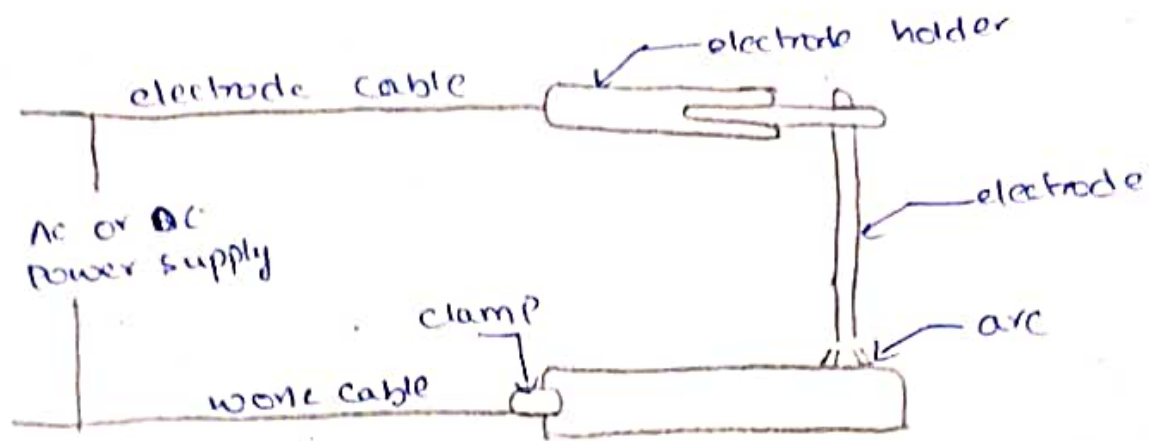 electrode holder
electrode cable
electrode
AC or DC
power supply
clamp
arc
work cable